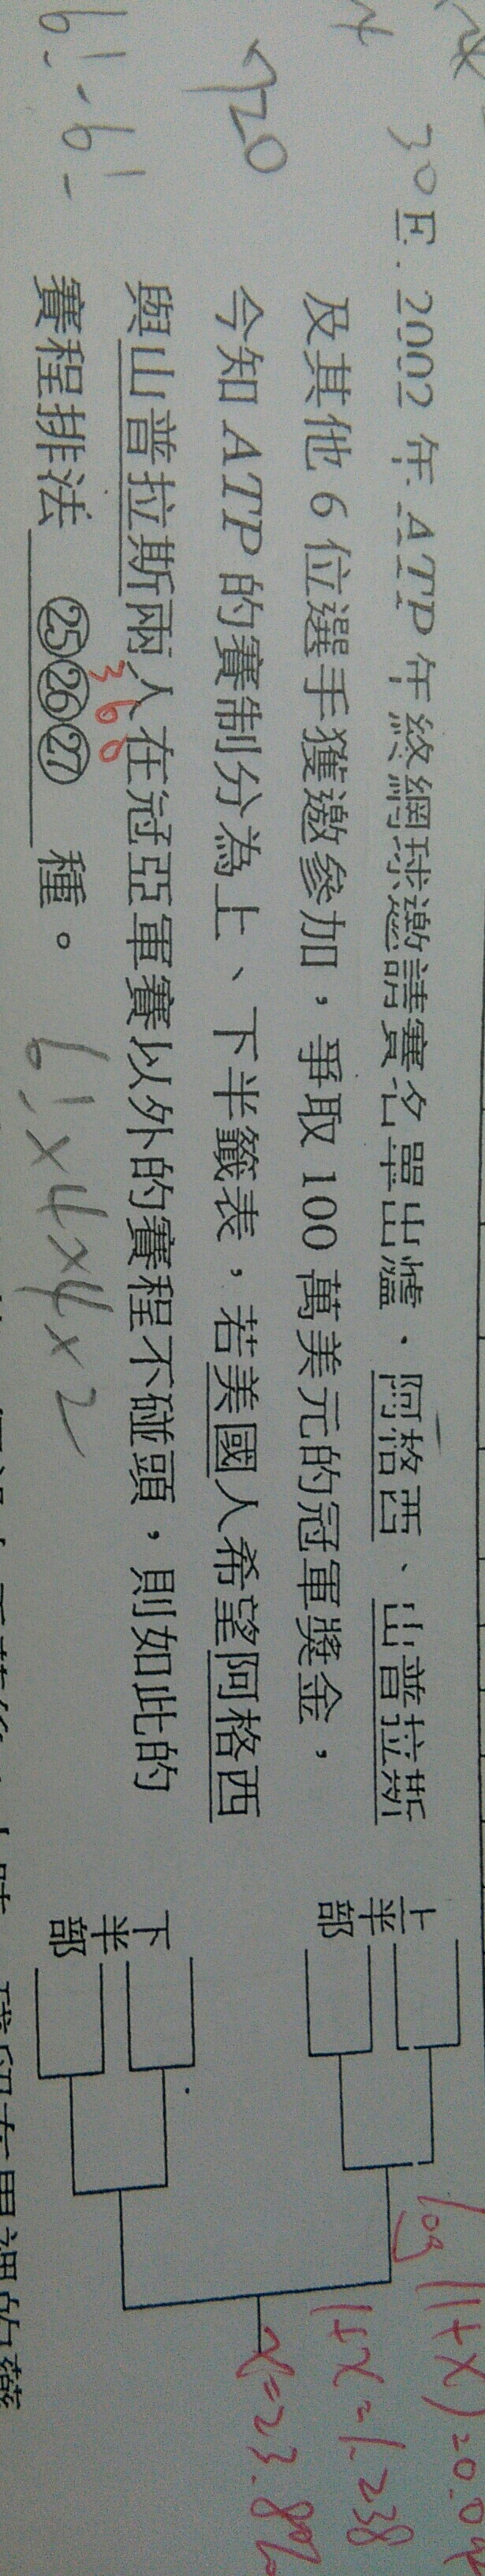 30
E. 2002 年 ATP 年終網球邀請賽名單出爐，阿格西、山普拉斯
及其他 6 位選手獲邀參加，爭取 100 萬美元的冠軍獎金，
今知 ATP 的賽制分為上、下半籤表，若美國人希望阿格西
與山普拉斯兩人在冠亞軍賽以外的賽程不碰頭，則如此的
賽程排法 ㉕㉖㉗ 種。
368
720
6!×4×4×2
上半部
下半部
1+x=1.238
x=23.8%